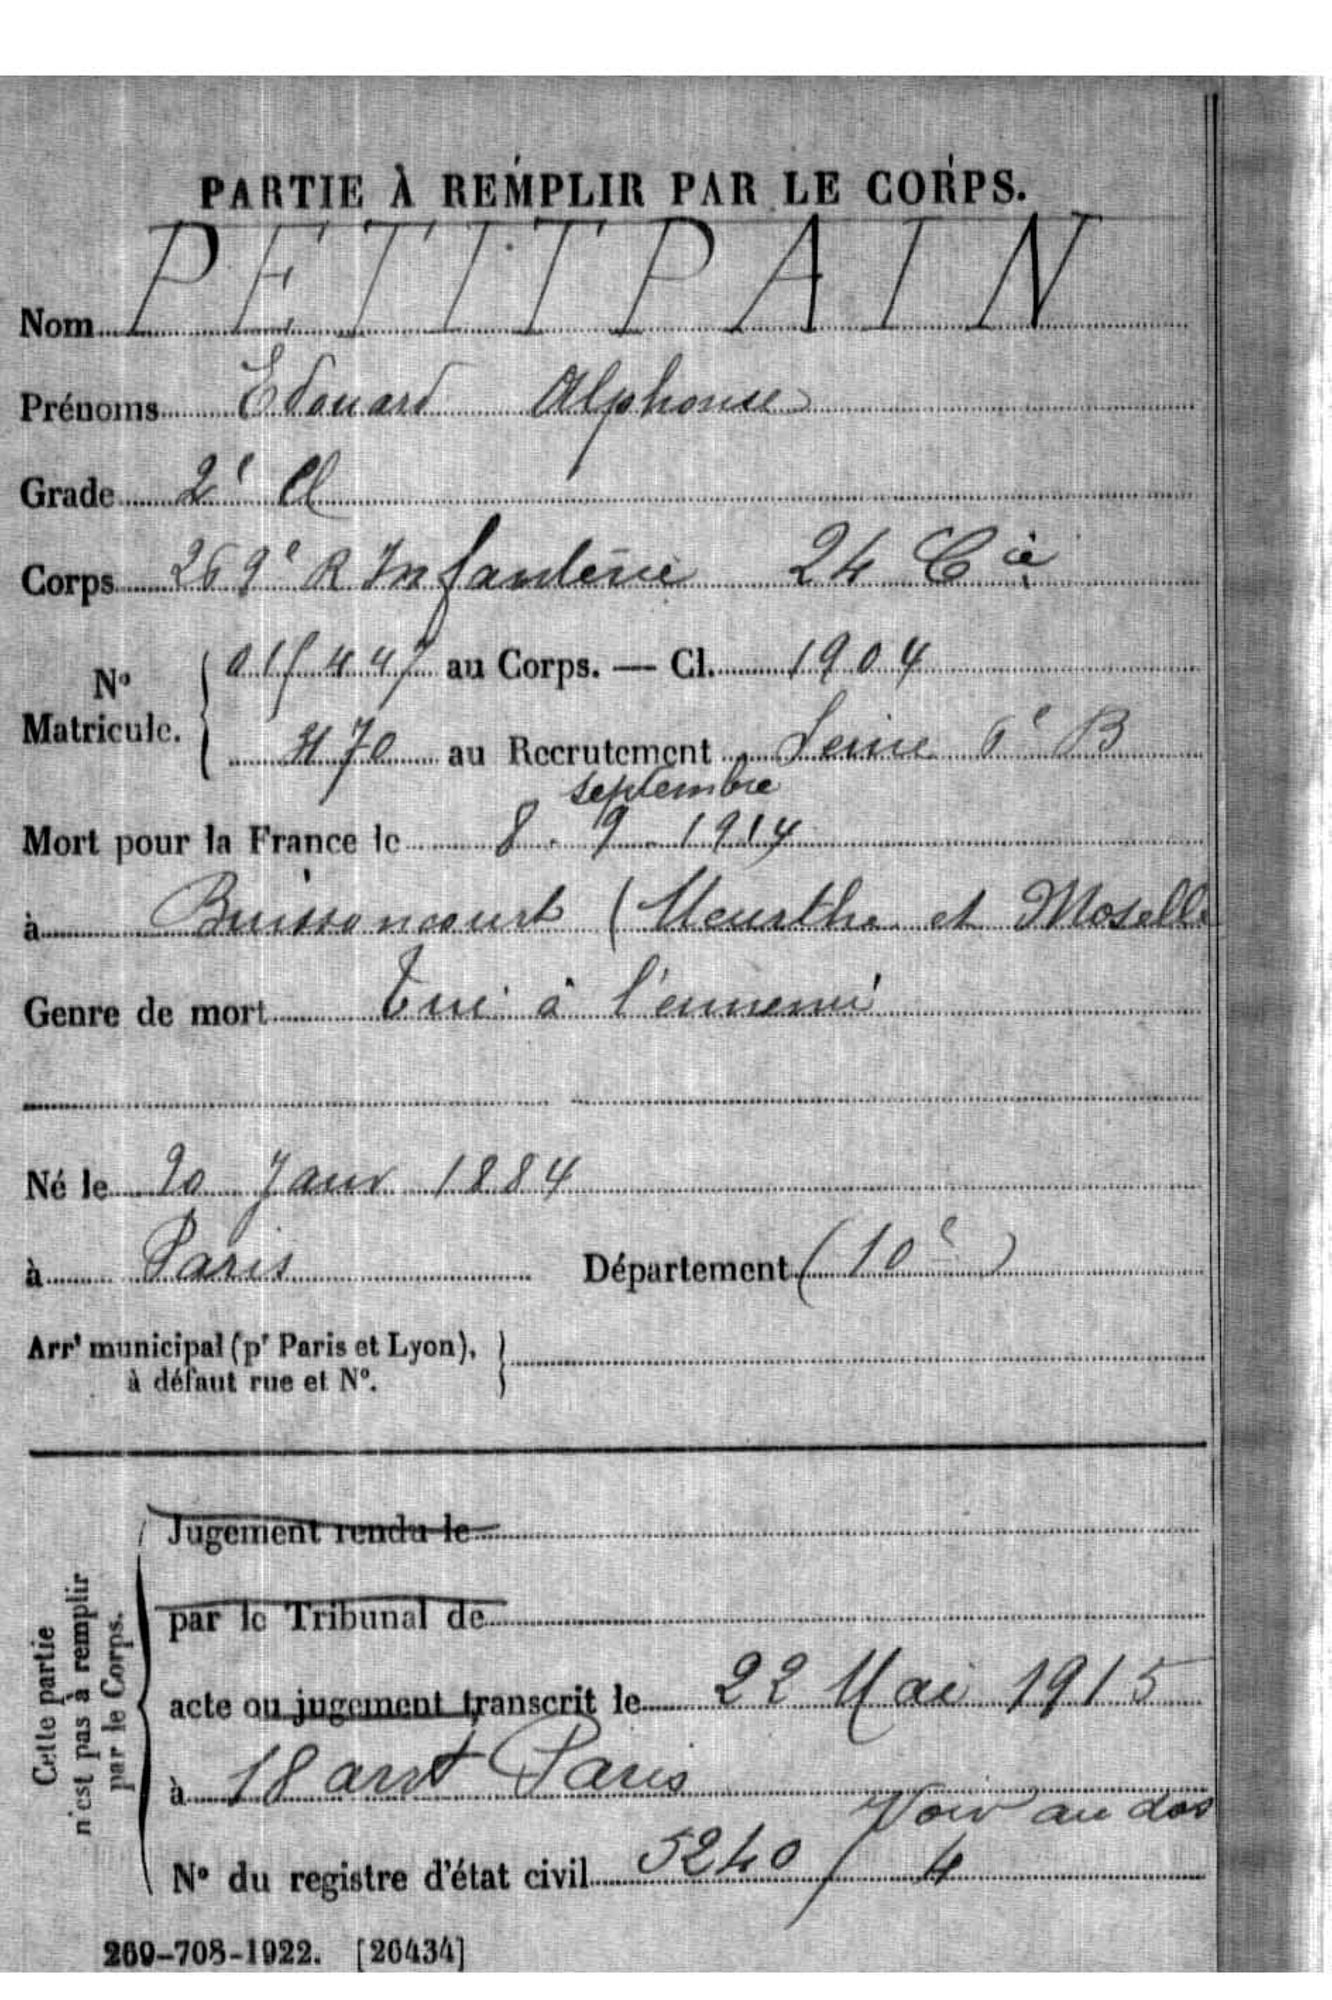 PARTIE À REMPLIR PAR LE CORPS.
Nom PETITPAIN
Prénoms Edouard Alphonse
Grade 2e Cl
Corps 269e R Infanterie 24 Cie
No Matricule. 015447 au Corps. — Cl. 1904
470 au Recrutement Seine 6e B
septembre
Mort pour la France le 8. 9. 1914
à Buissoncourt (Meurthe et Moselle
Genre de mort Tué à l'ennemi
Né le 20 Janv 1884
à Paris Département (10e)
Arrt municipal (pr Paris et Lyon), à défaut rue et No.
Cette partie n'est pas à remplir par le Corps.
Jugement rendu le
par le Tribunal de
acte ou jugement transcrit le 22 Mai 1915
à 18 arrt Paris
Voir au dos
No du registre d'état civil 5240 / 4
269-708-1922. [26434]